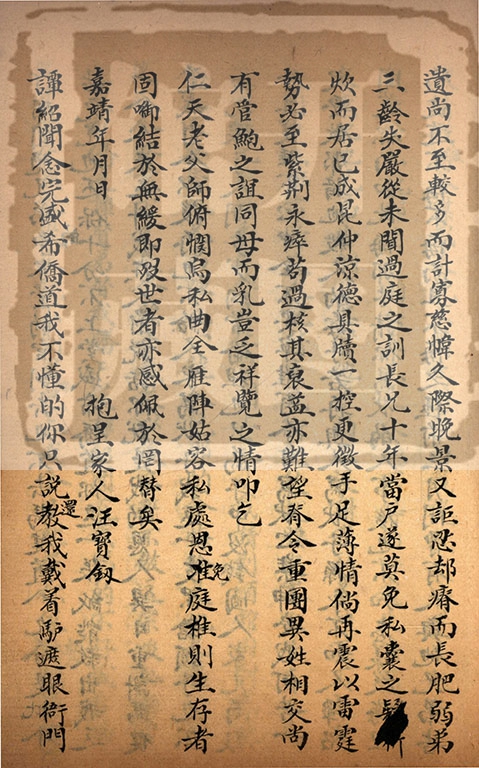 遺尚不至較多而計寡慈幃久際晚景又詎忍却瘠而長肥弱弟
三齡失嚴從未聞過庭之訓長兄十年當戶遂莫免私囊之疑析
炊而居已成昆仲諒德具牘一控更徵手足薄情倘再震以雷霆
勢必至紫荊永瘁苟過核其衷益亦難望脊令重團異姓相交尚
有管鮑之誼同母而乳豈乏祥覽之情叩乞
仁天老父師俯憫烏私曲全雁陣姑容私處恩准免庭椎則生存者
固啣結於無緩即歿世者亦感佩於罔替矣
嘉靖年月日 抱呈家人汪寶釼
譚紹聞念完盛希僑道我不懂的你只說還教我戴着馿遮眼衙門